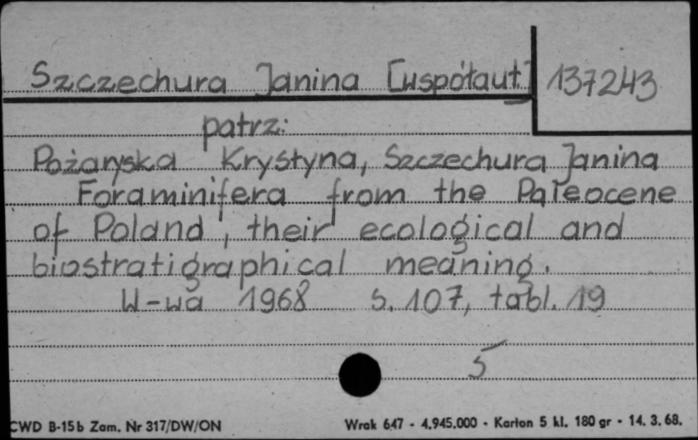 Szczechura Janina [współaut.]
137243
patrz:
Pożaryska Krystyna, Szczechura Janina
Foraminifera from the Paleocene
of Poland, their ecological and
biostratigraphical meaning.
W-wa 1968 s. 107, tabl. 19
5
CWD B-15b Zam. Nr 317/DW/ON Wrak 647 - 4.945.000 - Karton 5 kl. 180 gr - 14. 3. 68.